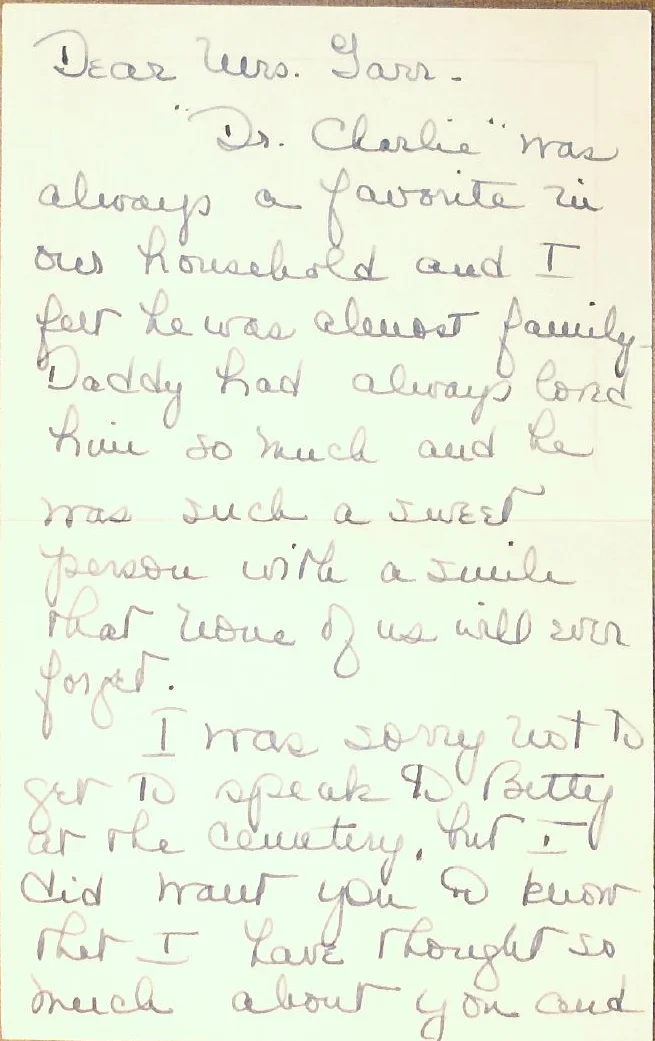 Dear Mrs. Garr -
"Dr. Charlie" was
always a favorite in
our household and I
felt he was almost family -
Daddy had always loved
him so much and he
was such a sweet
person with a smile
that none of us will ever
forget.
I was sorry not to
get to speak to Betty
at the cemetery, but I
did want you to know
that I have thought so
much about you and